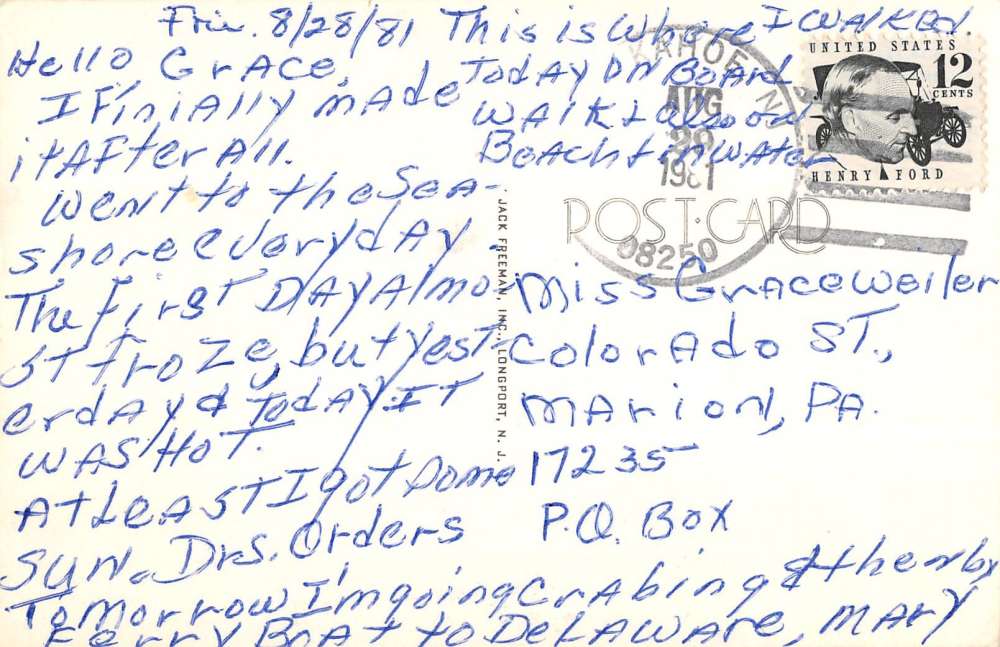 Fri. 8/28/81
Hello, Grace,
I Finially made
it After All.
Went to the Sea-
shore everyday.
The First Day Almo-
st froze, but Yest-
erday & Today It
was Hot.
At least I got some
Sun. Drs. Orders
Tomorrow I'm going crabing & then by
Ferry Boat to Delaware, Mary
This is where I walked
Today on Board
walk & also on
Beach & in water
UNITED STATES
12
CENTS
HENRY FORD
AHOE N
AUG
1981
08250
POST CARD
JACK FREEMAN, INC., LONGPORT, N. J.
Miss Grace Weiler
Colorado St.,
Marion, PA.
17235
P.O. Box